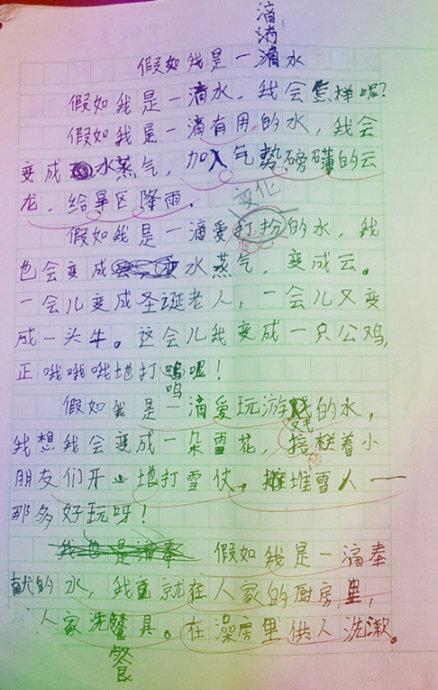 滴
滴
假如我是一滴水
假如我是一滴水，我会怎样呢？
假如我是一滴有用的水，我会
变成水蒸气，加入气势磅礴的云
龙，给旱区降雨。
变化
假如我是一滴爱打扮的水，我
也会变成水蒸气，变成云。
一会儿变成圣诞老人，一会儿又变
成一头牛。这会儿我变成一只公鸡，
正哦哦哦地打鸣呢！
鸣
假如我是一滴爱玩游戏的水，
戏
我想我会变成一朵雪花，陪着小
朋友们开心地打雪仗，堆雪人一
那多好玩呀！
假如我是一滴奉
献的水，我就在人家的厨房里，
人家洗餐具。在澡房里供人洗漱。
餐